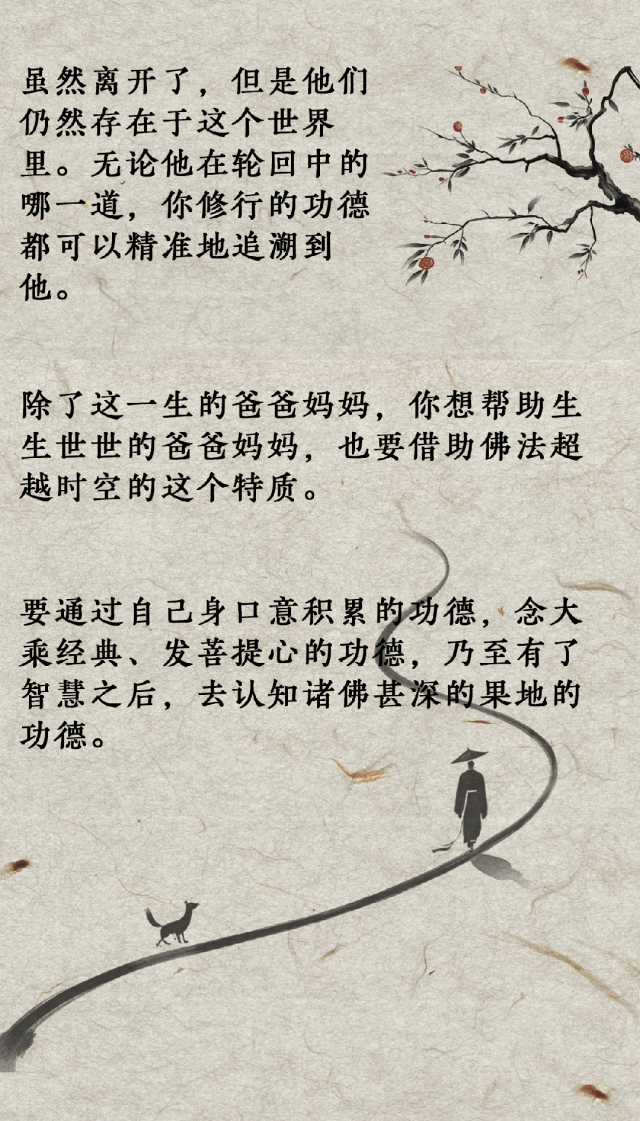 虽然离开了，但是他们
仍然存在于这个世界
里。无论他在轮回中的
哪一道，你修行的功德
都可以精准地追溯到
他。
除了这一生的爸爸妈妈，你想帮助生
生世世的爸爸妈妈，也要借助佛法超
越时空的这个特质。
要通过自己身口意积累的功德，念大
乘经典、发菩提心的功德，乃至有了
智慧之后，去认知诸佛甚深的果地的
功德。